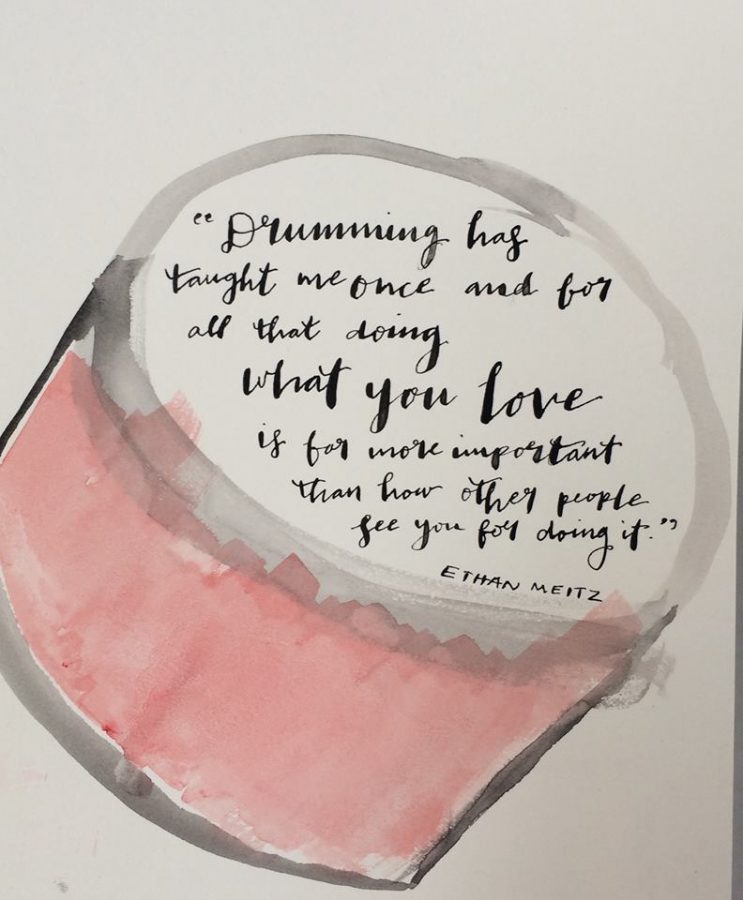 "Drumming has
taught me once and for
all that doing
what you love
is far more important
than how other people
see you for doing it."
ETHAN MEITZ